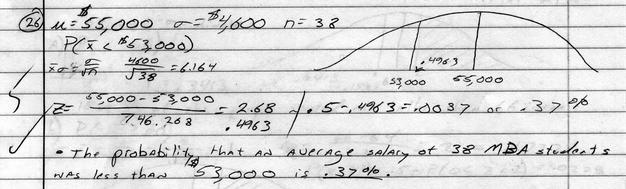 26 μ = $55,000 σ = $4,600 n = 38
P(x̄ < $53,000)
x̄σ = σ/√n 4600/√38 = 6.164
.4963
53,000 55,000
Z = 55,000 - 53,000 / 746.268 = 2.68 .5 - .4963 = .0037 or .37%
.4963
• The probability that an average salary of 38 MBA students
was less than $53,000 is .37%.